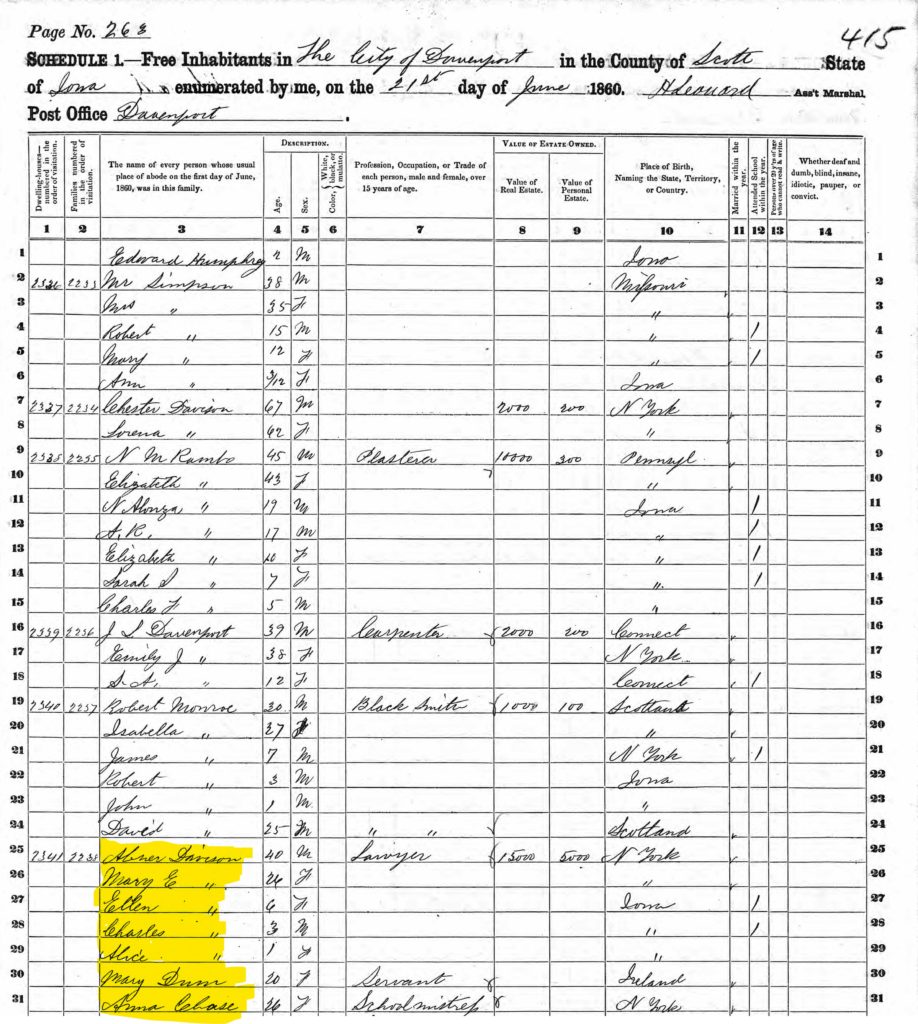 415
Page No. 263
SCHEDULE 1.—Free Inhabitants in The City of Davenport in the County of Scott State
of Iowa enumerated by me, on the 21st day of June 1860. H Leonard Ass't Marshal
Post Office Davenport.
Dwelling-houses—numbered in the order of visitation.
Families numbered in the order of visitation.
The name of every person whose usual place of abode on the first day of June, 1860, was in this family.
DESCRIPTION.
Age.
Sex.
Color, White, black, or mulatto.
Profession, Occupation, or Trade of each person, male and female, over 15 years of age.
VALUE OF ESTATE OWNED.
Value of Real Estate.
Value of Personal Estate.
Place of Birth, Naming the State, Territory, or Country.
Married within the year.
Attended School within the year.
Persons over 20 y'rs of age who cannot read & write.
Whether deaf and dumb, blind, insane, idiotic, pauper, or convict.
1 2 3 4 5 6 7 8 9 10 11 12 13 14
1 Edward Humphrey 2 M Iowa 1
2 2336 2233 Mr Simpson 38 M Missouri 2
3 Mrs " 35 F " 3
4 Robert " 15 M " / 4
5 Mary " 12 F " / 5
6 Ann " 3/12 F Iowa 6
7 2337 2234 Chester Davison 67 M 2000 200 N York 7
8 Lorena " 62 F " 8
9 2338 2235 N M Rambo 45 M Plasterer 10000 300 Pennsyl 9
10 Elizabeth " 43 F " 10
11 N Alonza " 19 M Iowa / 11
12 A. R. " 17 M " / 12
13 Elizabeth " 10 F " / 13
14 Sarah S " 7 F " / 14
15 Charles F " 5 M " 15
16 2339 2236 J S Davenport 39 M Carpenter 2000 200 Connect 16
17 Emily J " 38 F N York 17
18 S. A. " 12 F Connect / 18
19 2340 2237 Robert Monroe 30 M Black Smith 1000 100 Scotland 19
20 Isabella " 27 F " 20
21 James " 7 M N York / 21
22 Robert " 3 M Iowa 22
23 John " 1 M " 23
24 David " 25 M " " Scotland 24
25 2341 2238 Abner Davison 40 M Lawyer 15000 5000 N York 25
26 Mary E " 26 F " 26
27 Ellen " 6 F Iowa / 27
28 Charles " 3 M " / 28
29 Alice " 1 F " 29
30 Mary Dunn 20 F Servant Ireland 30
31 Anna Chase 26 F School mistress N York 31